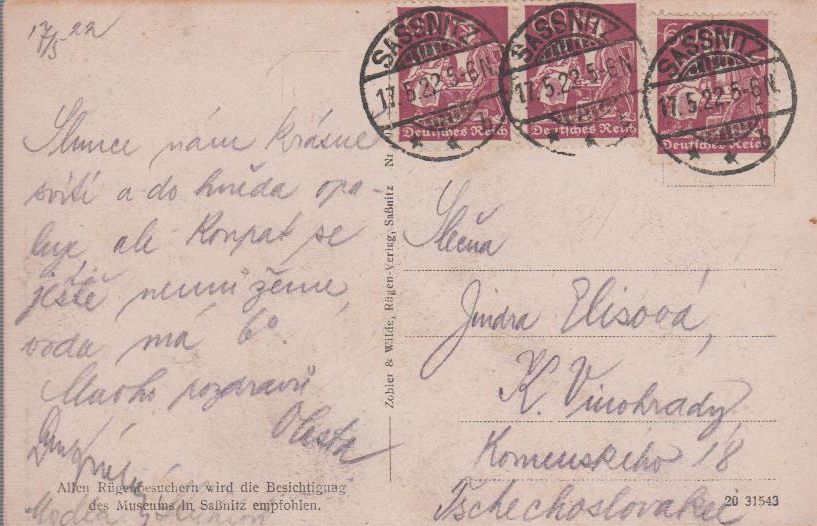 17/5 22
SASSNITZ
17.5.22.5-6N.
Deutsches Reich
SASSNITZ
17.5.22.5-6N.
Deutsches Reich
60
SASSNITZ
17.5.22.5-6N.
Deutsches Reich
Slunce nám krásně
svítí a do hněda opa-
luje, ale koupat se
ještě nemůžeme,
voda má 6°.
Mnoho pozdravů
Vlasta
Allen Rügenbesuchern wird die Besichtigung
des Museums in Saßnitz empfohlen.
Zobler & Wilde, Rügen-Verlag, Saßnitz Nr
Slečna
Jindra Elisová,
K. Vinohrady
Komenského 18
Tschechoslovakei
20 31543